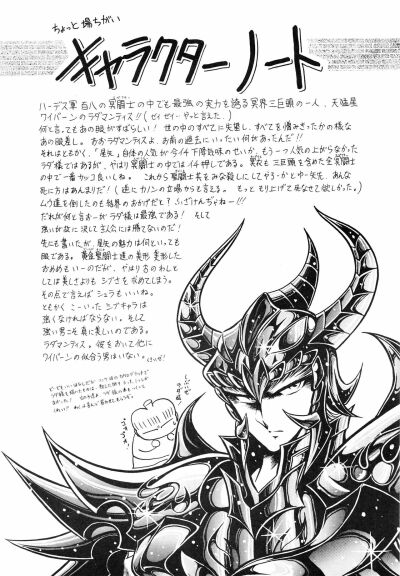 ちょっと場ちがい
キャラクターノート
ハーデス軍百八の冥闘士の中でも最強の実力を誇る冥界三巨頭の一人、天猛星
ワイバーンのラダマンティス!!(ゼイゼイ…やっと言えた。)
何と言ってもあの眼がすばらしい! 世の中のすべてに失望し、すべてを憎みきったかの様な
あの眼差し。おおラダマンティスよ、お前の過去にいったい何があったんだ!!
それはともかく、「星矢」自体の人気が今イチ下降気味のせいか、もう一つ人気の上がらなかった
ラダ様ではあるが、やはり冥闘士の中ではイチ押しである。冥衣も三巨頭を含めた全冥闘士
の中で一番カッコ良いしね。これから聖闘士共をみな殺しにしてやるっかとゆー矢先、あんな
死に方はあんまりだ!(逆にカノンの立場からも言える。もっともり上げて死なせて欲しかった。)
ムウ達を倒したのも結界のおかげだと?ふざけんぢゃねー!!!
だれが何と言おーがラダ様は最強である! そして
強いが故に決して主人公には勝てないのだ!
先にも書いたが、星矢の魅力は何といっても
眼である。黄金聖闘士達の美形
も一のだが、やはり吉のわとし
としては美しさよりもシブさを求めてしまう。
その点で言えばシュラもいいね。
ともかくこーいったシブキャラは
強くなければならない。そして
強い男こそ真に美しいのである。
ラダマンティス。何をおいて他に
ワイバーンの似合う男はいない。